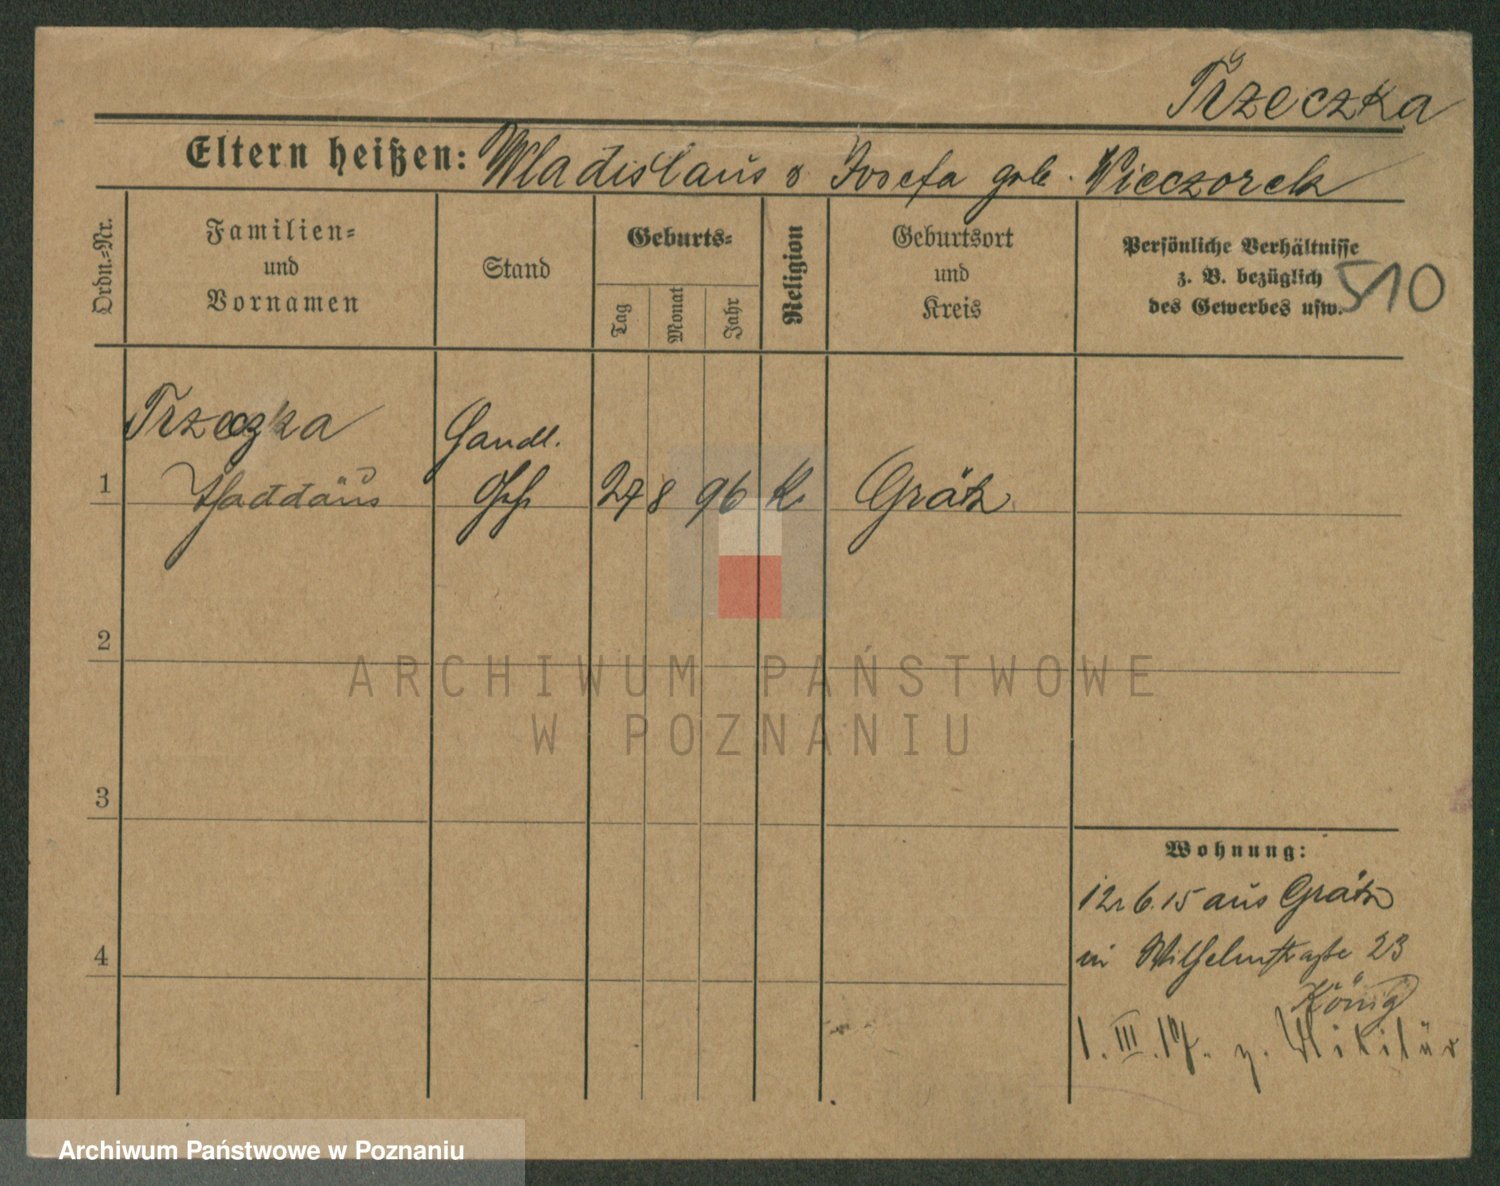 Trzeczka
Eltern heißen: Wladislaus & Josefa geb. Wieczorek
Ordn.-Nr.
Familien-
und
Vornamen
Stand
Geburts-
Tag
Monat
Jahr
Religion
Geburtsort
und
Kreis
Persönliche Verhältnisse
z. B. bezüglich
des Gewerbes usw.
510
Trzeczka
Handl.
1 Thaddäus Ghf 27 8 96 K. Grätz
2
ARCHIWUM PAŃSTWOWE
W POZNANIU
3
Wohnung:
12. 6. 15 aus Grätz
4
in Wilhelmstraße 23
König
1. III. 17. z. Militär
Archiwum Państwowe w Poznaniu